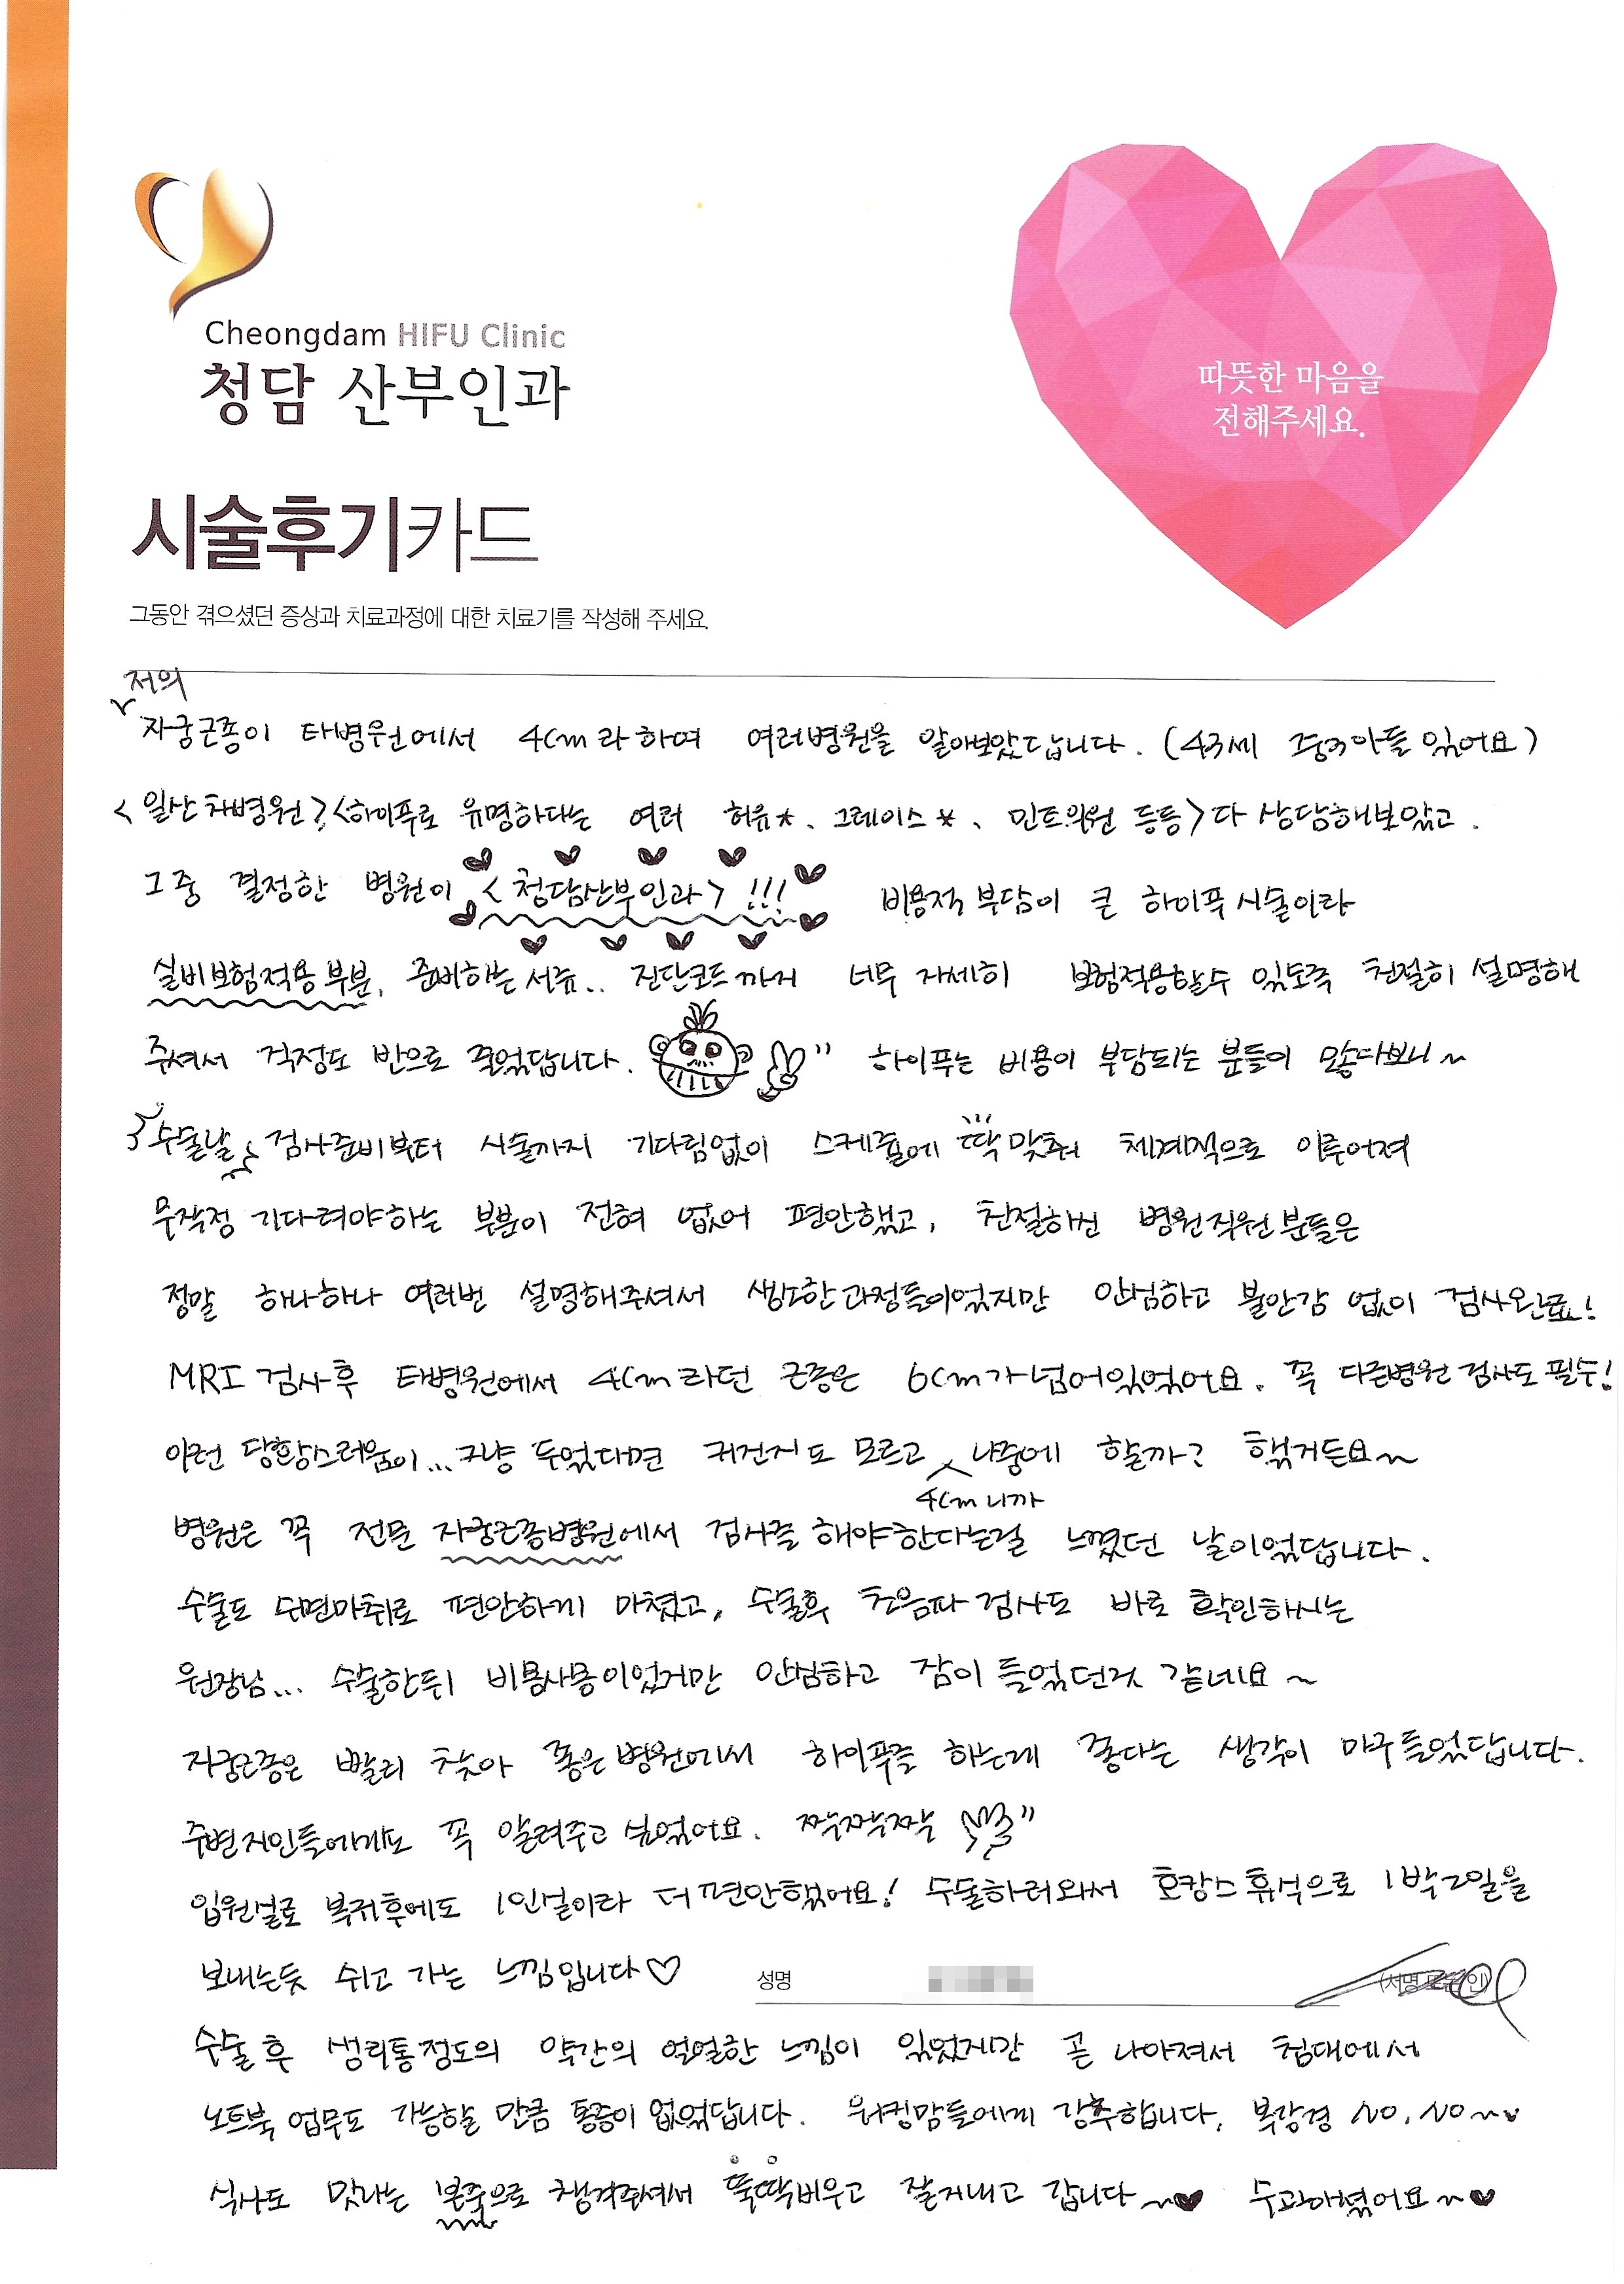 Cheongdam HIFU Clinic
청담 산부인과
따뜻한 마음을
전해주세요.
시술후기카드
그동안 겪으셨던 증상과 치료과정에 대한 치료기를 작성해 주세요.
저의
자궁근종이 타병원에서 4cm라하여 여러병원을 알아보았답니다. (43세 중3아들 있어요)
<일산차병원? <하이푸로 유명하다는 여러 허유*. 그레이스*, 민트의원 등등> 다 상담해보았고.
그중 결정한 병원이 <청담산부인과> !!! 비용적 부담이 큰 하이푸시술이라
실비보험적용부분, 준비하는 서류.. 진단코드까지 너무 자세히 보험적용할수 있도록 친절히 설명해
주셔서 걱정도 반으로 줄었답니다. 하이푸는 비용이 부담되는 분들이 많다보니~
수술날 검사준비부터 시술까지 기다림없이 스케쥴에 딱 맞춰 체계적으로 이루어져
무작정 기다려야하는 부분이 전혀 없어 편안했고, 친절하신 병원직원분들은
정말 하나하나 여러번 설명해주셔서 생소한과정들이었지만 안심하고 불안감 없이 검사완료!
MRI 검사후 타병원에서 4cm라던 근종은 6cm가 넘어있었어요. 꼭 다른병원 검사도 필수!
이런 당황스러움이... 그냥 두었다면 커진지도 모르고 나중에 할까? 했거든요~
4cm니까
병원은 꼭 전문 자궁근종병원에서 검사를 해야한다는걸 느꼈던 날이었답니다.
수술도 수면마취로 편안하게 마쳤고, 수술후 초음파검사도 바로 확인하시는
원장님... 수술한뒤 비몽사몽이었지만 안심하고 잠이 들었던것 같네요~
자궁근종은 빨리 찾아 좋은병원에서 하이푸를 하는게 좋다는 생각이 마구 들었답니다.
주변지인들에게도 꼭 알려주고 싶었어요. 짝짝짝
입원실로 복귀후에도 1인실이라 더 편안했어요! 수술하러와서 호캉스 휴식으로 1박2일을
보내는듯 쉬고 가는 느낌입니다♡ 성명 (서명 또는 인)
수술 후 생리통정도의 약간의 얼얼한 느낌이 있었지만 곧 나아져서 침대에서
노트북 업무도 가능할 만큼 통증이 없었답니다. 워킹맘들에게 강추합니다. 복강경 NO, NO~
식사도 맛나는 본죽으로 챙겨주셔서 뚝딱비우고 잘지내고 갑니다~♥ 수고하셨어요~♥